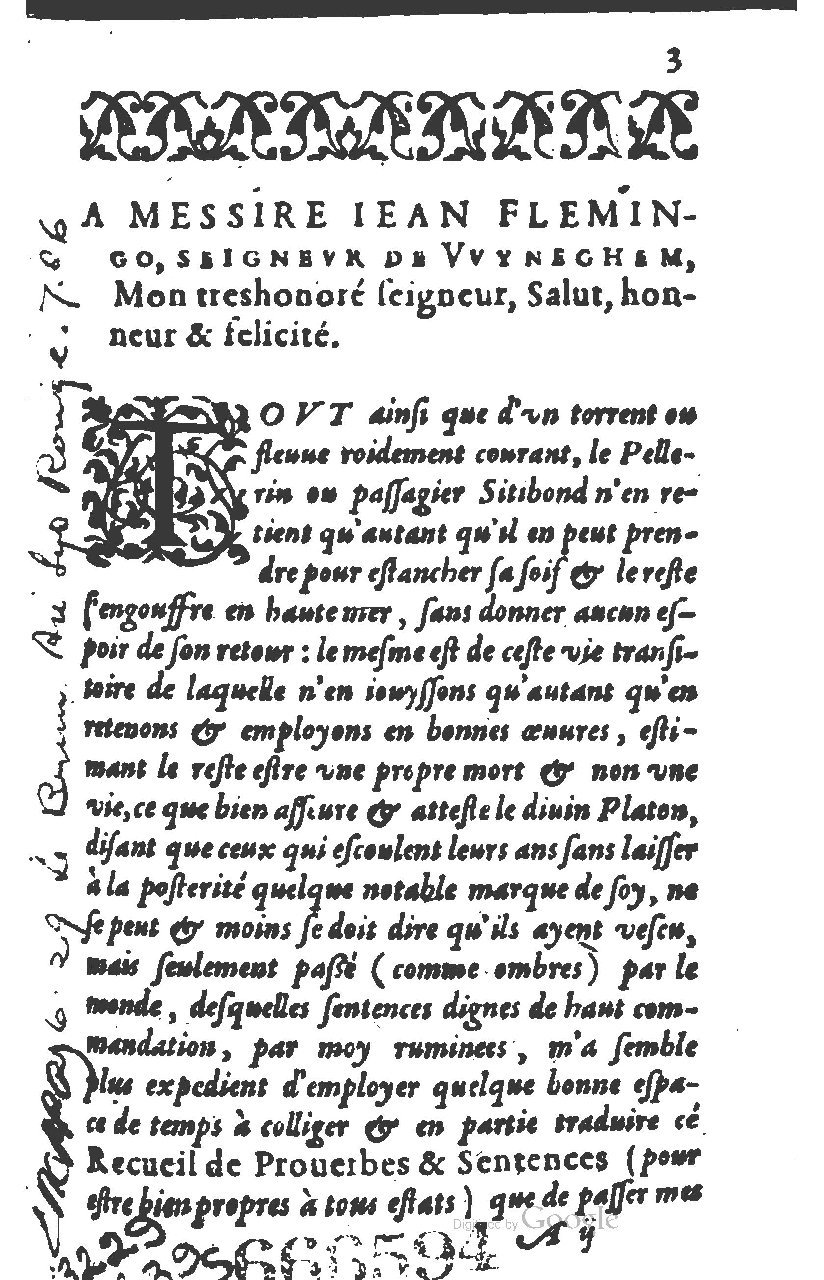 3
A MESSIRE IEAN FLEMIN-
GO, SEIGNEVR DE VVYNEGHEM,
Mon treshonoré ſeigneur, Salut, hon-
neur & felicité.
TOVT ainſi que d'vn torrent ou
fleuue roidement courant, le Pelle-
rin ou paſſagier Sitibond n'en re-
tient qu'autant qu'il en peut pren-
dre pour eſtancher ſa ſoif & le reſte
ſ'engouffre en haute mer, ſans donner aucun eſ-
poir de ſon retour : le meſme eſt de ceſte vie tranſi-
toire de laquelle n'en iouyſſons qu'autant qu'en
retenons & employons en bonnes œuures, eſti-
mant le reſte eſtre vne propre mort & non vne
vie, ce que bien aſſeure & atteſte le diuin Platon,
diſant que ceux qui eſcoulent leurs ans ſans laiſſer
à la poſterité quelque notable marque de ſoy, ne
ſe peut & moins ſe doit dire qu'ils ayent veſcu,
mais ſeulement paſſé (comme ombres) par le
monde, deſquelles ſentences dignes de haut com-
mandation, par moy ruminees, m'a ſemble
plus expedient d'employer quelque bonne eſpa-
ce de temps à colliger & en partie traduire cé
Recueil de Prouerbes & Sentences (pour
eſtre bien propres à tous eſtats) que de paſſer mes
A ij
Digitized by Google